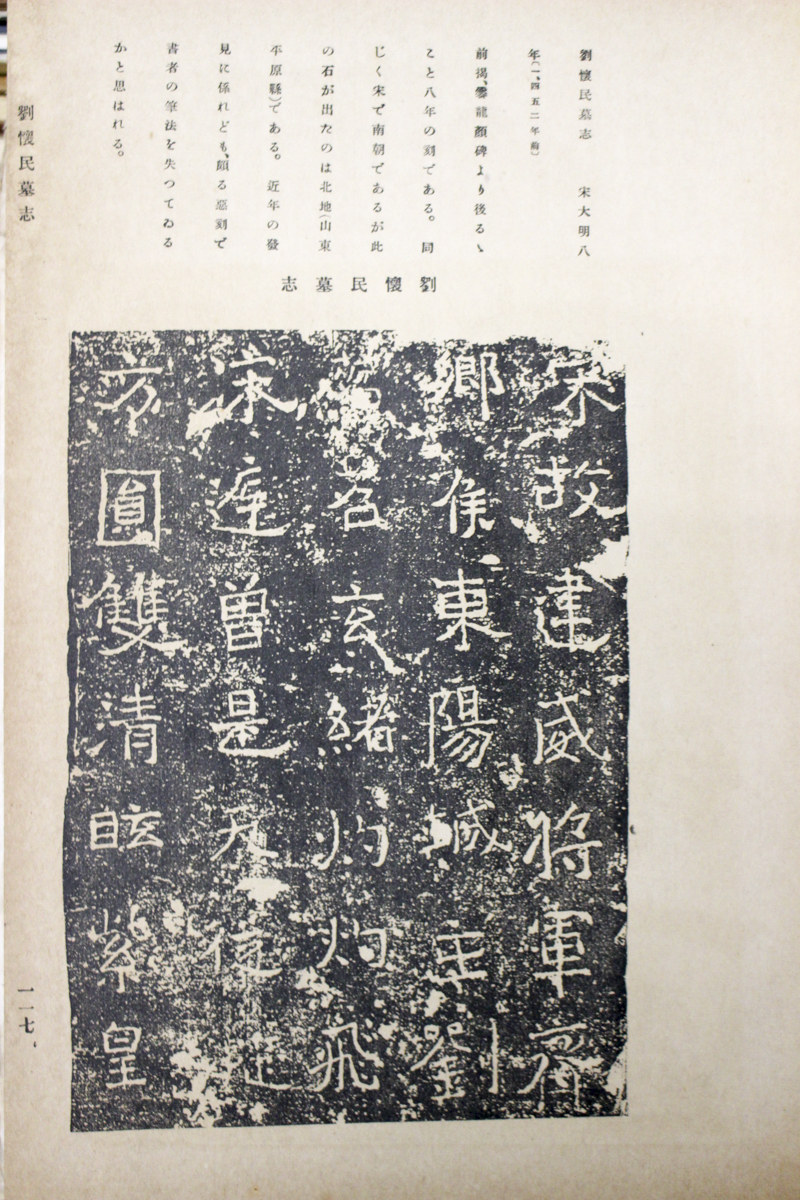 劉懷民墓志　宋大明八
年(一、四五二年前)
前揭、爨龍顏碑より後るゝ
こと八年の刻である。同
じく宋で南朝であるが此
の石が出たのは北地(山東
平原縣)である。近年の發
見に係れども、頗る惡刻で
書者の筆法を失つてゐる
かと思はれる。
劉懷民墓志
宋故建威將軍齊
鄉侯東陽城主劉
苕苕玄緒灼灼飛
曾是
方圓雙清眩紫皇
劉懷民墓志
一一七